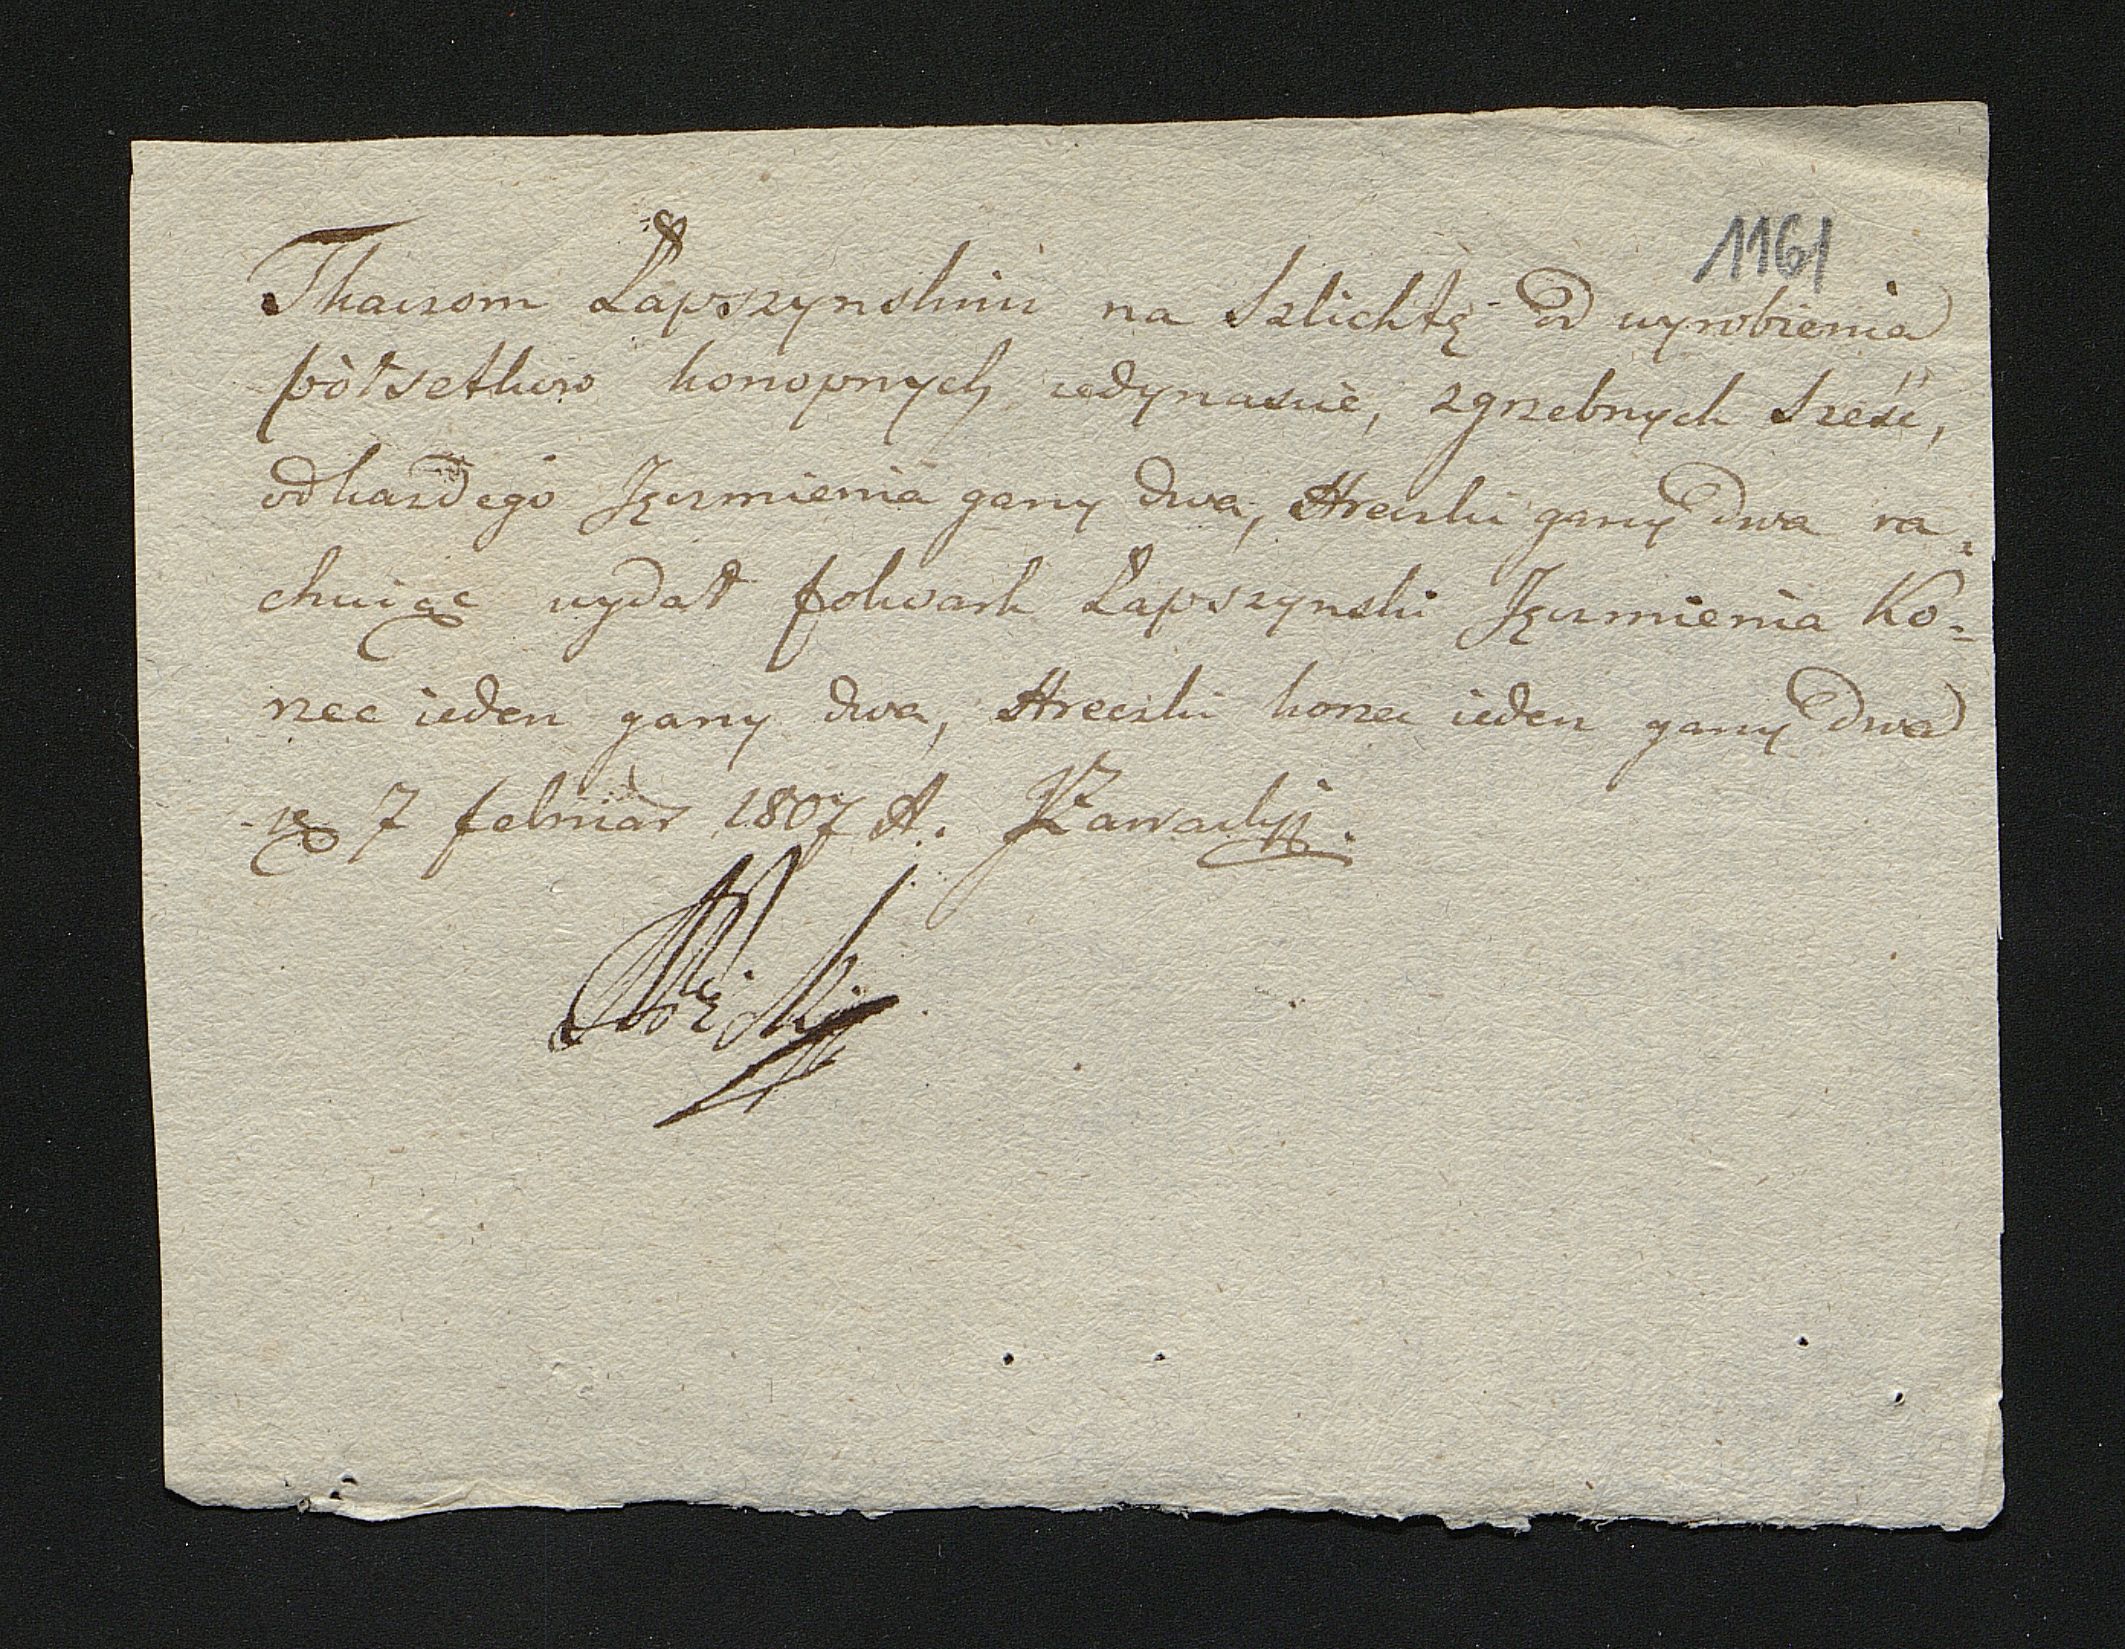 1161
Tkaczom Łapszynskim na Szlichtę od wyrobienia
pòłsetkow konopnych iedynascie, zgrzebnych Sześć,
od kazdego Jęczmienia garcy dwa, Hreczki garcy dwa ra=
chuiąc wydał folwark Łapszynski Jęczmienia Ko=
rzec ieden garcy dwa, Hreczki korzec ieden garcy dwa
7 februar 1807 A.